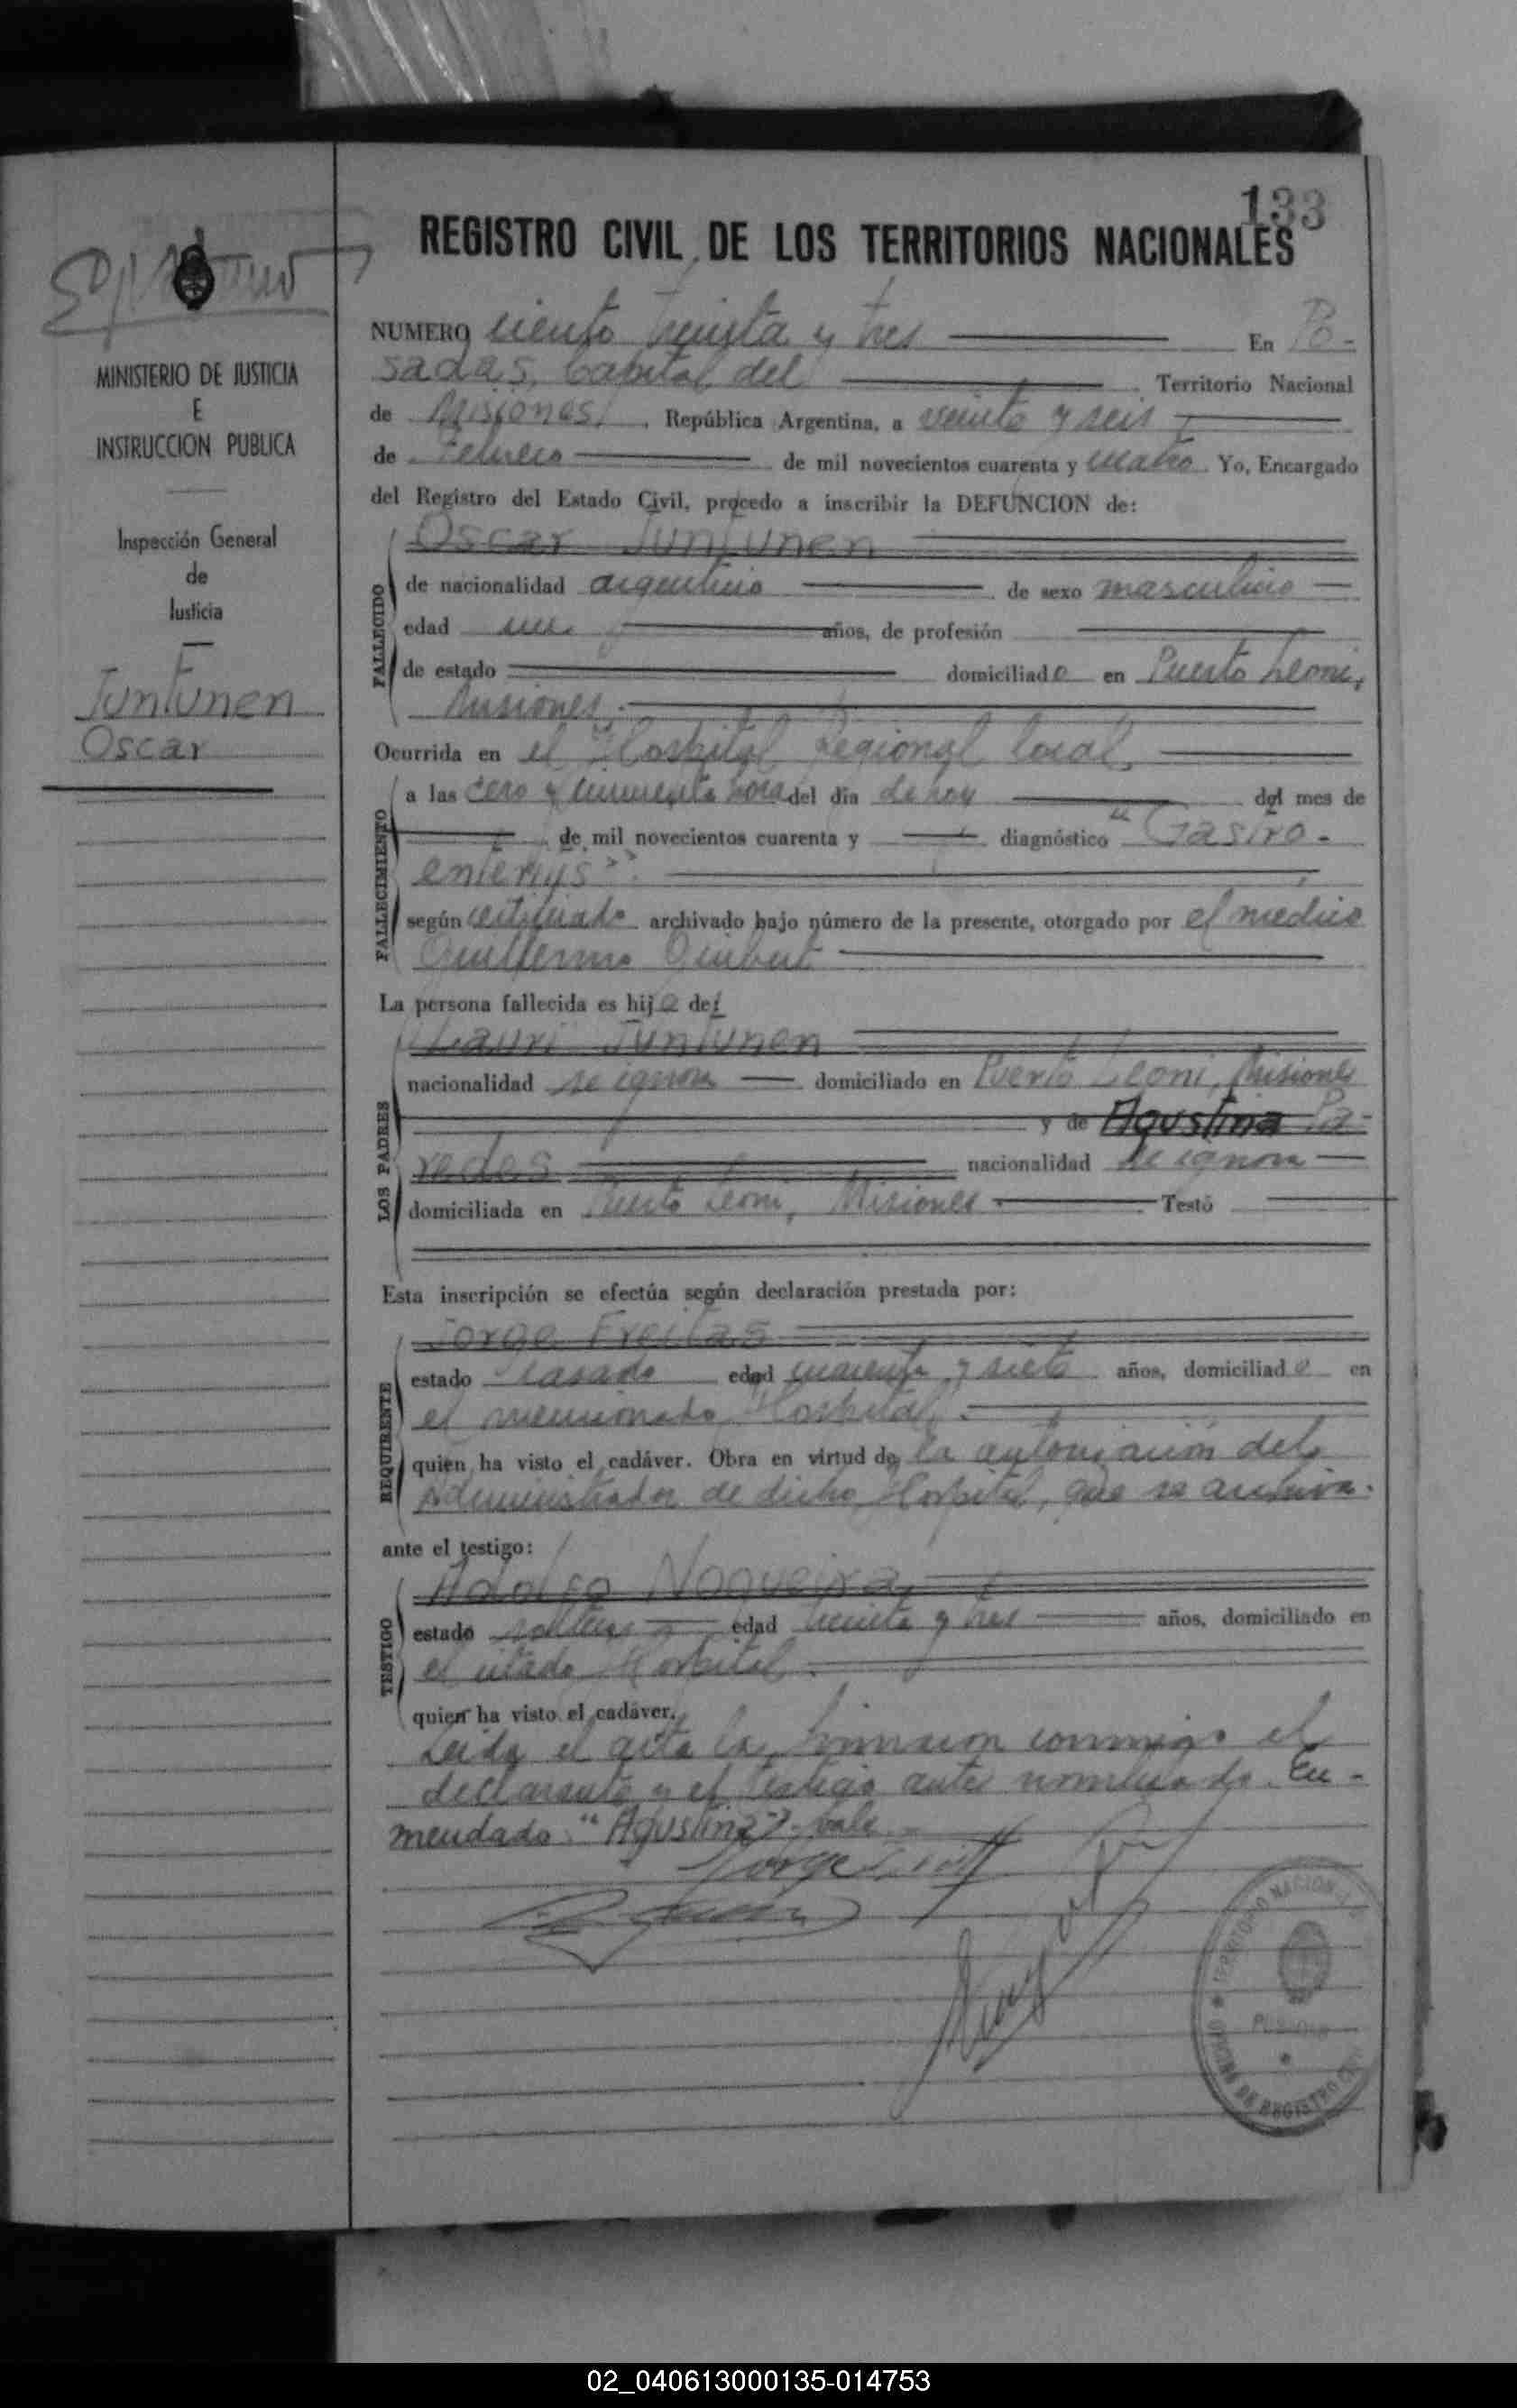 133
REGISTRO CIVIL DE LOS TERRITORIOS NACIONALES
MINISTERIO DE JUSTICIA
E
INSTRUCCION PUBLICA
Inspección General
de
Justicia
Juntunen
Oscar
NUMERO ciento treinta y tres En Po-
sadas, Capital del Territorio Nacional
de Misiones, República Argentina, a veinte y seis
de Febrero de mil novecientos cuarenta y cuatro Yo, Encargado
del Registro del Estado Civil, procedo a inscribir la DEFUNCION de:
Oscar Juntunen
FALLECIDO
de nacionalidad argentino de sexo masculino
edad un años, de profesión
de estado domiciliado en Puerto Leoni,
Misiones.
Ocurrida en el Hospital Regional local,
FALLECIMIENTO
a las cero y cincuenta hora del día de hoy del mes de
de mil novecientos cuarenta y diagnóstico "Gastro-
enteritys".
según certificado archivado bajo número de la presente, otorgado por el médico
Guillermo
La persona fallecida es hijo de:
LOS PADRES
Lauri Juntunen
nacionalidad se ignora domiciliado en Puerto Leoni, Misiones
y de Agustina Pa-
redes nacionalidad se ignora
domiciliada en Puerto Leoni, Misiones Testó
Esta inscripción se efectúa según declaración prestada por:
REQUIRENTE
Jorge Freitas
estado casado edad cuarenta y siete años, domiciliado en
el mencionado Hospital.
quien ha visto el cadáver. Obra en virtud de la autorización del
Administrador de dicho Hospital, que se archiva.
ante el testigo:
TESTIGO
Adolfo Nogueira,
estado soltero edad treinta y tres años, domiciliado en
el citado Hospital.
quien ha visto el cadáver.
Leida el acta la firmaron conmigo el
declarante y el testigo antes nombrado. En-
mendado: "Agustina" vale.
Jorge
TERRITORIO NACIONAL
POSADAS
OFICINA DE REGISTRO CIVIL
02_040613000135-014753